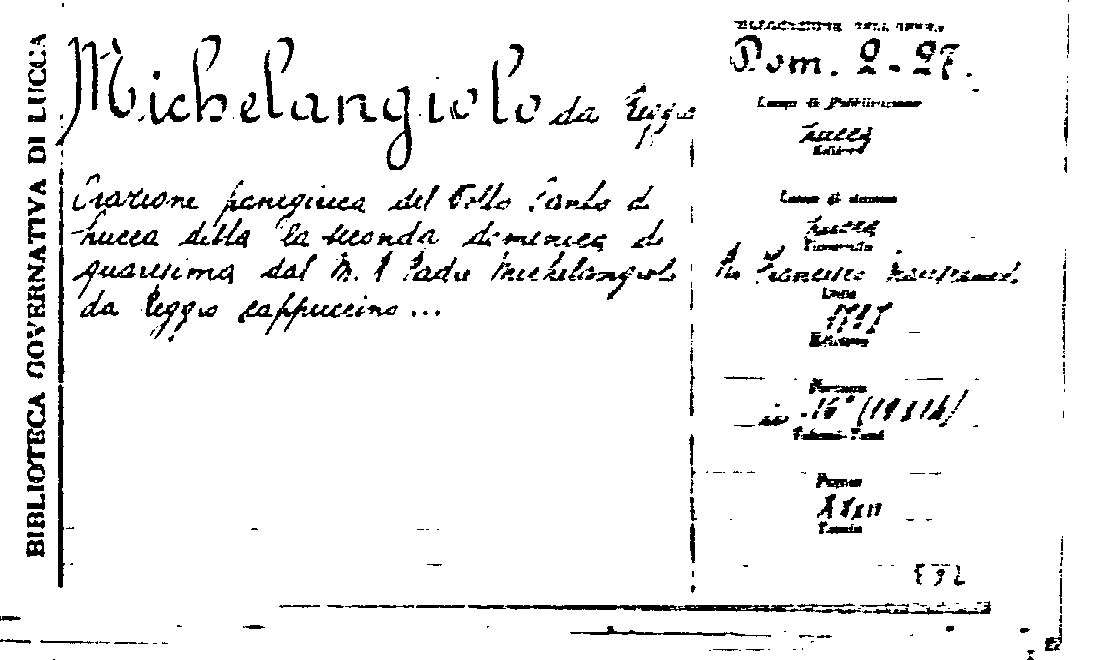 BIBLIOTECA GOVERNATIVA DI LUCCA
Michelangiolo da Reggio
Orazione panegirica del Volto Santo di
Lucca detta la seconda domenica di
quaresima dal M. R. Padre Michelangiolo
da Reggio cappuccino...
Pom. 2-27.
Luogo di Pubblicazione
Lucca
Editore
Luogo di stampa
Lucca
Francesco
Data
Edizione
Formato
in-16°
Volumi-Tomi
Pagine